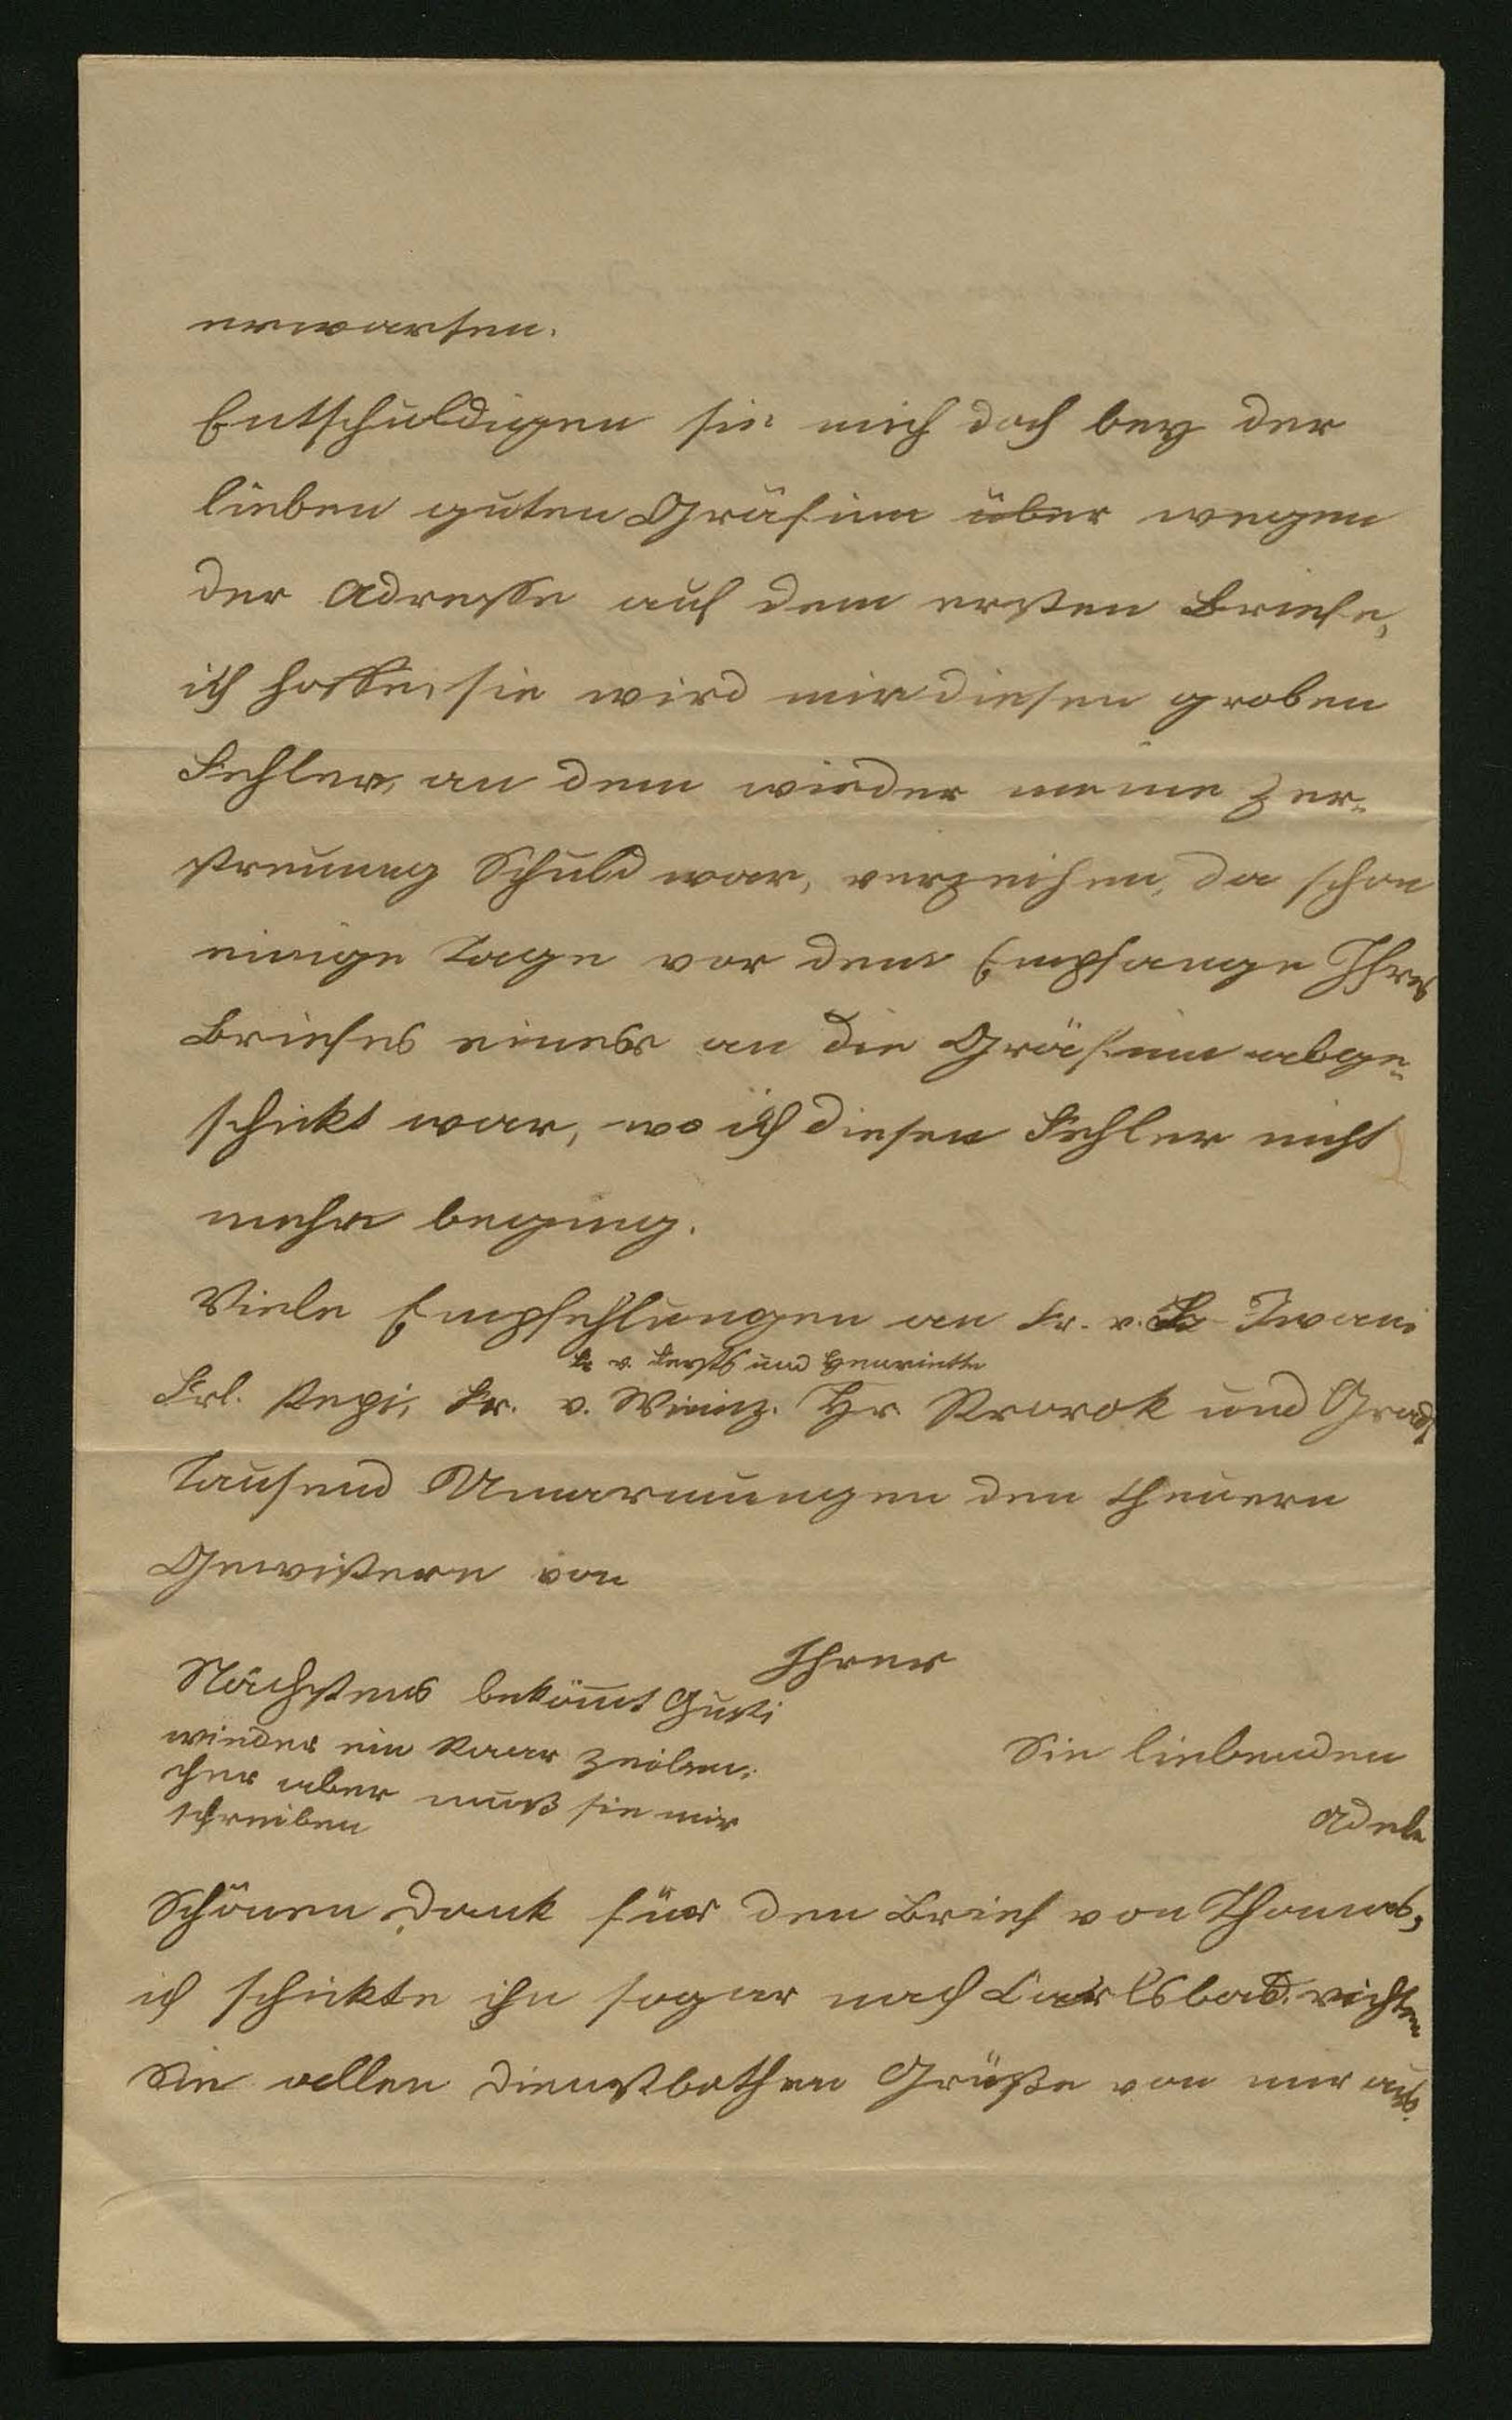 erwarten.
Entschuldigen sie mich doch bey der
lieben guten Gräfinn über wegen
der Adresse auf dem ersten Briefe,
ich hoffe, sie wird mir diesen groben
Fehler, an dem wieder meine Zer-
streuung Schuld war, verzeihen, da schon
einige Tage vor dem Empfange Ihres
Briefes einer an die Gräfinn abge-
schickt war, wo ich diesen Fehler nicht
mehr beging.
Viele Empfehlungen an Fr. v. Iwani
Fr. v. und Henriette
Frl. Pepi, Fr. v. Hr Prorok und
Tausend Umarmungen den theuern
von
Ihrer
Nächstens bekömt Gusti
wieder ein Paar Zeilen,
eher aber muß sie mir
schreiben
Sie liebenden
Adele
Schönen Dank für den Brief von Thomas,
ich schickte ihn sogar nach Carlsbad. richten
Sie allen Dienstbothen Grüße von mir aus.